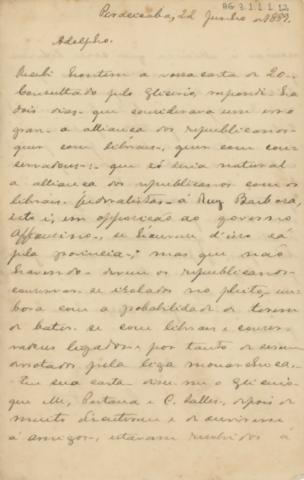 AG 3.1.1.1.12
Piracicaba, 22 Junho de 1889.
Adolpho.
Recebi hontem a vossa carta de 20.
Consultado pelo Glicerio, respondi ha
dois dias que considerava um erro
grave a alliança dos republicanos
quer com liberaes, quer com con-
servadores; que só seria natural
a alliança dos republicanos com os
liberaes federalistas á Ruy Barbosa,
isto é, em opposição ao governo
Affonsino, se houvesse d'isso cá
pela provincia; mas que não
havendo devem os republicanos
conservar-se isolados no pleito, em-
bora com a probabilidade de terem
de bater-se com liberaes e conser-
vadores ligados e por tanto de serem
derrotados pela liga monarchica.
Em sua carta disse-me o Glicerio
que elle, Pestana e C. Salles, depois de
muito discutirem e de ouvirem
á amigos, estavam resolvidos á